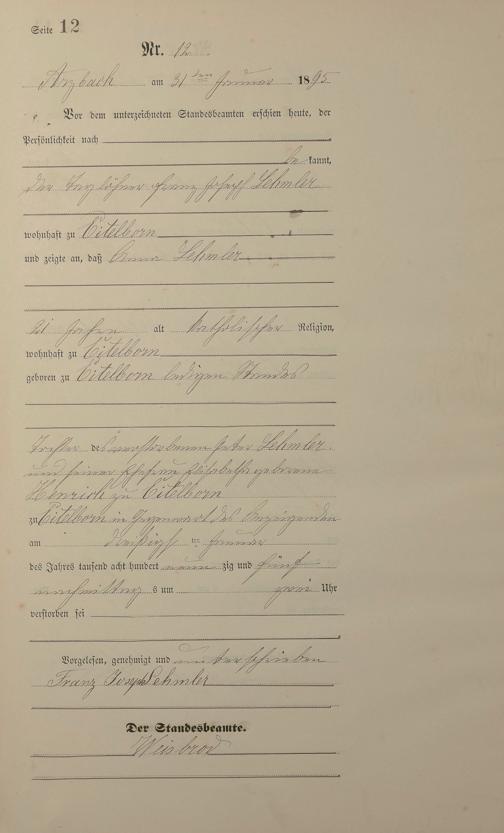 Seite 12
Nr. 12
Arzbach am 31ten Januar 1895
Vor dem unterzeichneten Standesbeamten erschien heute, der
Persönlichkeit nach
be kannt,
der Taglöhner Franz Joseph Lehmler
wohnhaft zu Eitelborn
und zeigte an, daß Anna Lehmler
21 Jahre alt katholischer Religion,
wohnhaft zu Eitelborn
geboren zu Eitelborn ledigen Standes
Tochter des verstorbenen Peter Lehmler
und seiner Ehefrau Elisabetha geborene
Henrich zu Eitelborn
zu Eitelborn in Gegenwart des Anzeigenden
am dreißigsten Januar
des Jahres tausend acht hundert neunzig und fünf
nachmittags um zwei Uhr
verstorben sei
Vorgelesen, genehmigt und unterschrieben
Franz Joseph Lehmler
Der Standesbeamte.
Weisbrod